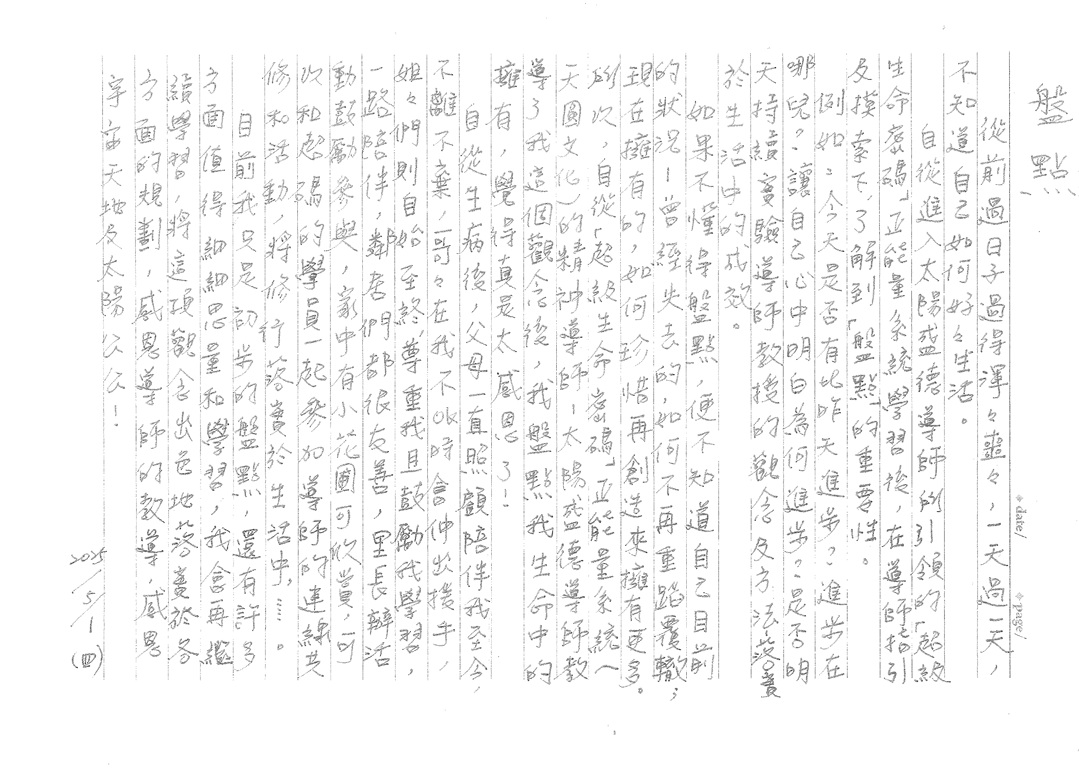 盤點
date/
page/
從前過日子過得渾々噩々，一天過一天，
不知道自己如何好々生活。
自從進入太陽盛德導師所引領的「超級
生命密碼」正能量系統學習後，在導師指引
及摸索下，了解到「盤點」的重要性。
例如：今天是否有比昨天進步？進步在
哪兒？讓自己心中明白為何進步？是否明
天持續實驗導師教授的觀念及方法落實
於生活中的成效。
如果不懂得盤點，便不知道自己目前
的狀況－曾經失去的，如何不再重蹈覆轍；
現在擁有的，如何珍惜再創造來擁有更多。
所以，自從「超級生命密碼」正能量系統(
天圓文化)的精神導師－太陽盛德導師教
導了我這個觀念後，我盤點我生命中的
擁有，覺得真是太感恩了！
自從生病後，父母一直照顧陪伴我至今，
不離不棄，哥々在我不OK時會伸出援手，
姐々們則自始至終，尊重我且鼓勵我學習，
一路陪伴，鄰居們都很友善，里長辦活
動鼓勵參與，家中有小花圃可欣賞，可
以和密碼的學員一起參加導師的連線共
修和活動，將修行落實於生活中，……。
目前我只是初步的盤點，還有許多
方面值得細細思量和學習，我會再繼
續學習，將這項觀念出色地落實於各
方面的規劃，感恩導師的教導，感恩
宇宙天地及太陽公公！
2025/5/1(四)